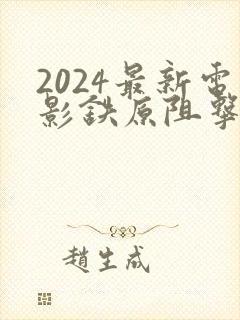 2024最新電
影鉄原阻擊
趙生成